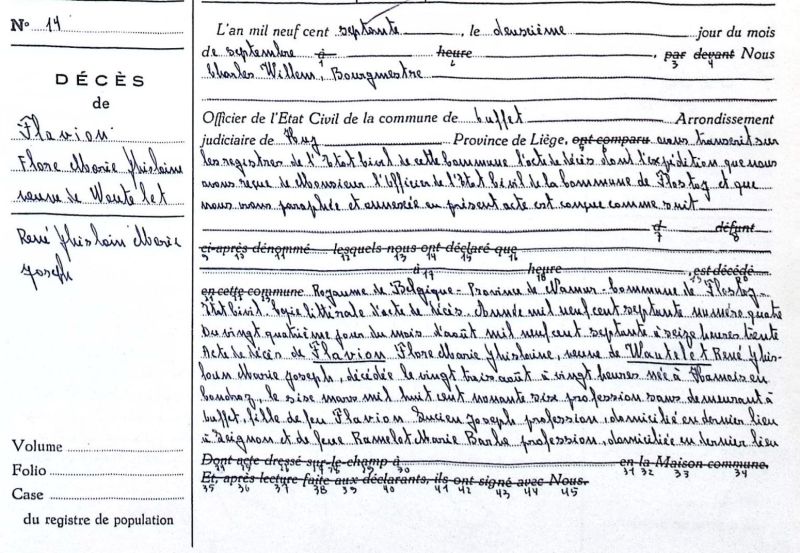 N° 14
DÉCÈS
de
Flavion
Flore Marie Ghislaine
veuve de Wautelet
René Ghislain Marie
Joseph
Volume
Folio
Case
du registre de population
L'an mil neuf cent septante, le deuxième jour du mois
de septembre à heure, par devant Nous
1 2 3 4
Charles Willem, Bourgmestre
Officier de l'Etat Civil de la commune de Buffet Arrondissement
judiciaire de Huy Province de Liège, ont comparu avons transcrit sur
les registres de l'Etat Civil de cette Commune l'acte de décès dont l'expédition que nous
avons reçue de Monsieur l'Officier de l'Etat Civil de la Commune de Flostoy et que
nous avons paraphée et annexée au présent acte est conçue comme suit
d défunt
7 8
ci-après dénommé lesquels nous ont déclaré que
9 10 11 12 13 14 15 16
à heure, est décédé
17 18 19 20
en cette commune Royaume de Belgique - Province de Namur - Commune de Flostoy
Etat Civil. Copie littérale d'acte de décès. Année mil neuf cent septante numéro quatre
Du vingt quatrième jour du mois d'août mil neuf cent septante à seize heures trente
Acte de décès de Flavion Flore Marie Ghislaine, veuve de Wautelet René Ghis-
lain Marie Joseph, décédée le vingt trois août à vingt heures née à Hamois en
Condroz, le six mars mil huit cent nonante six profession sans demeurant à
Buffet, fille de feu Flavion Lucien Joseph profession, domicilié en dernier lieu
à et de feue Ramelot Marie Barbe profession, domiciliée en dernier lieu
Dont acte dressé sur-le-champ à en la Maison commune.
31 32 33 34
Et, après lecture faite aux déclarants, ils ont signé avec Nous.
35 36 37 38 39 40 41 42 43 44 45